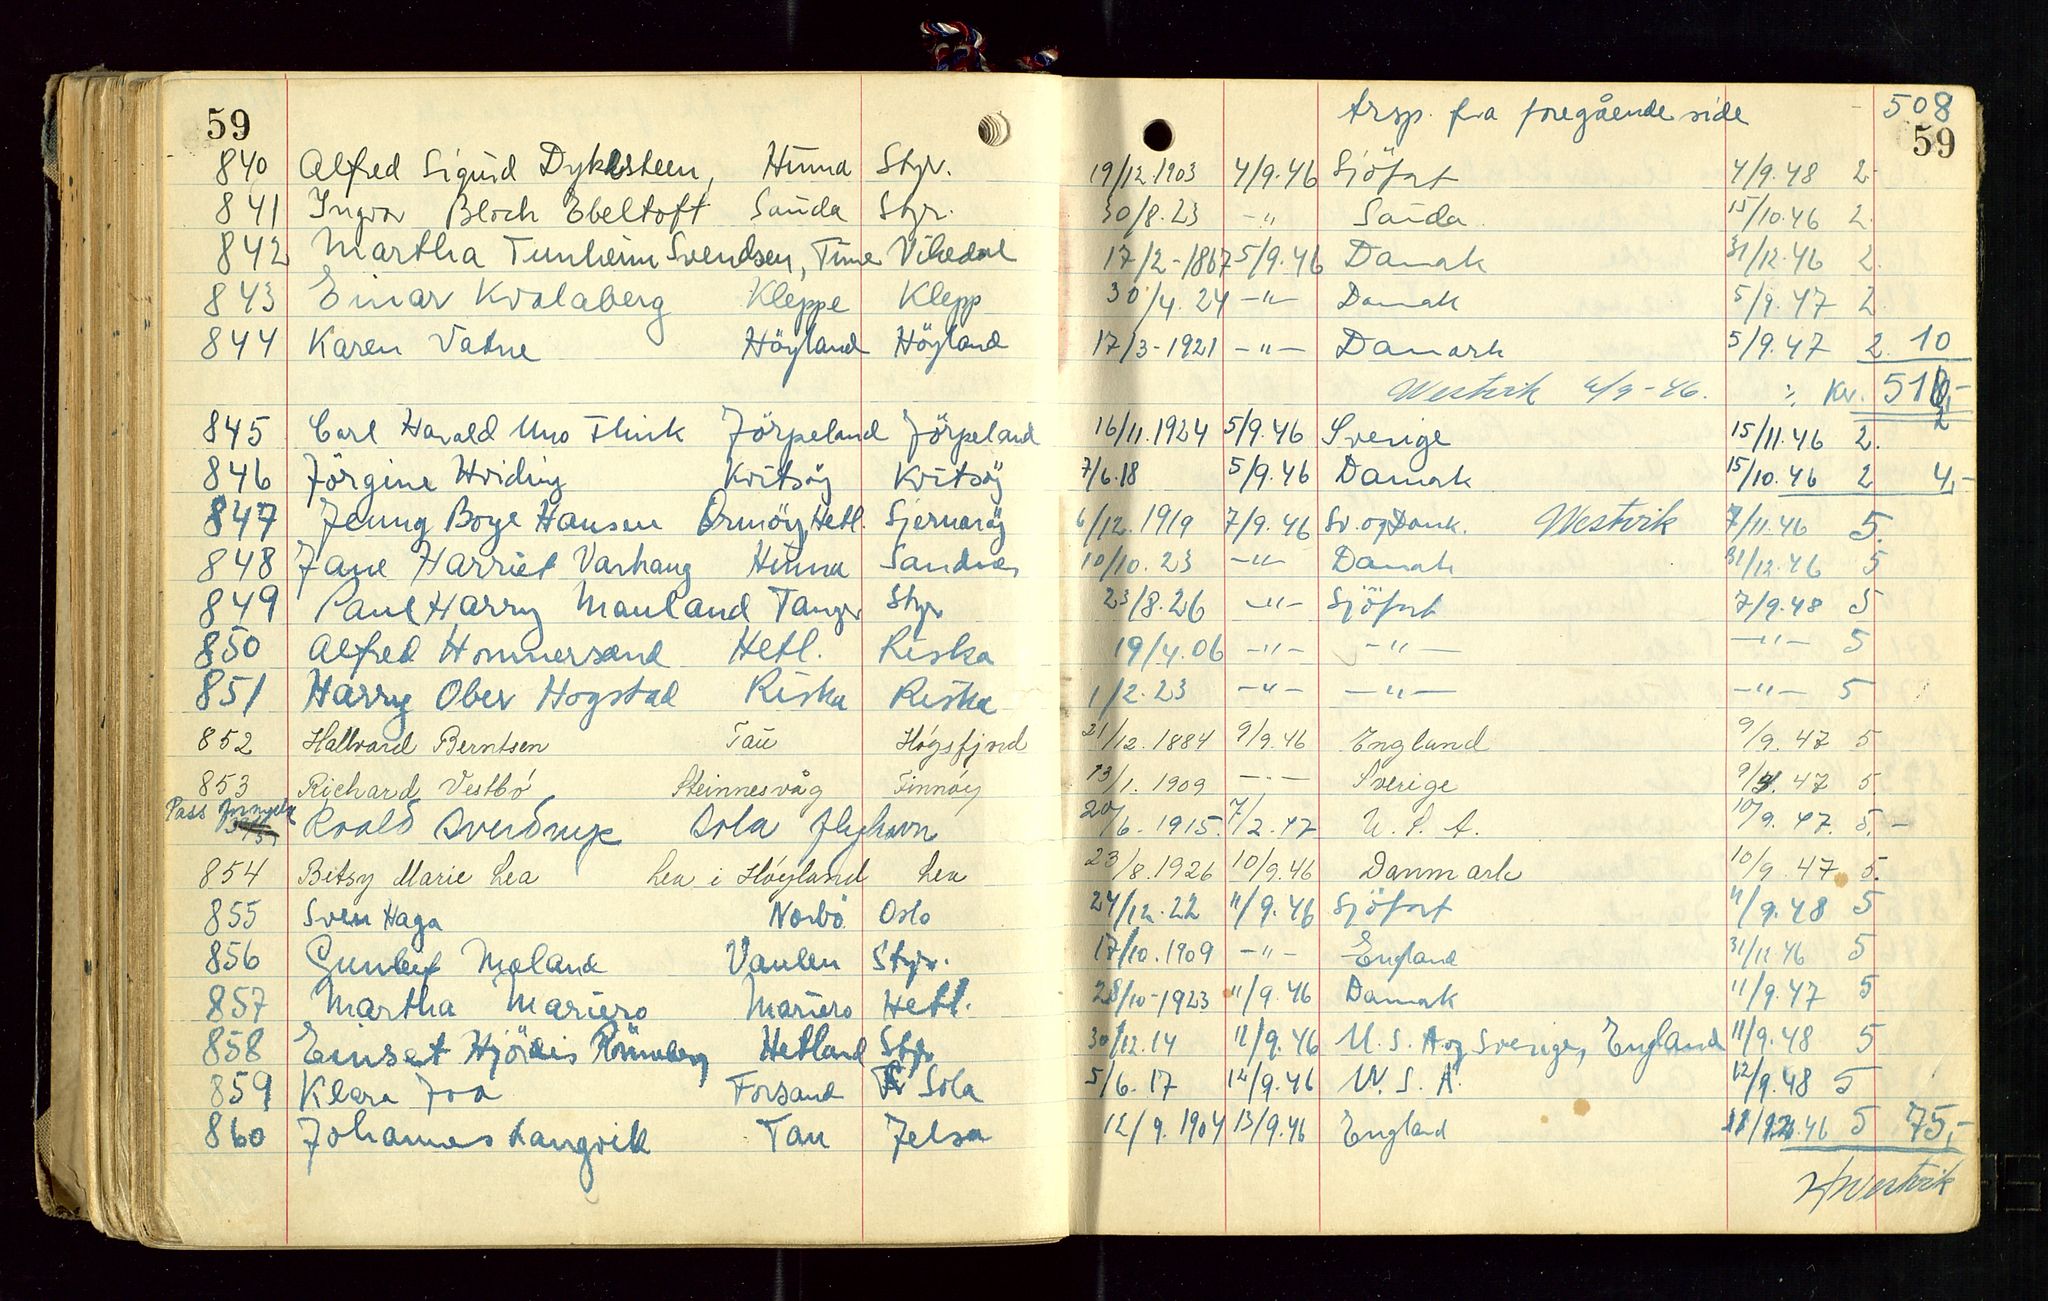 trsp. fra foregående side 508
59 59
840 Alfred Sigurd Dyklesteen, Hinna Styr. 19/12.1903 4/9.46 Sjöfart 4/9.48 2
841 Ingvar Bloch Ebeltoft Sauda Styr. 30/8.23 -"- Sauda 15/10.46 2.
842 Martha Tunheim Svendsen, Time Vikedal 17/2-1867 5/9.46 Damark 31/12.46 2.
843 Einar Kvalaberg Kleppe Klepp 30/4.24 -"- Damark 5/9.47 2.
844 Karen Vatne Höyland Höyland 17/3-1921 -"- Damark 5/9.47 2. 10
Westvik 4/9-46. Kr. 518,-
845 Carl Harald Uno Flink Jörpeland Jörpeland 16/11.1924 5/9.46 Sverige 15/11.46 2. 2
846 Jörgine Hviding Kvitsöy Kvitsöy 7/6.18 5/9.46 Damark 15/10.46 2 4,-
847 Jenny Boye Hansen Ormöy, Hetl. Sjernaröy 6/12.1919 7/9.46 Sv. og Dank. Westvik 7/11.46 5.
848 Jane Harriet Varhaug Hinna Sandnes 10/10.23 -"- Damark 31/12.46 5
849 Paul Harry Mauland Tanger Styr 23/8.26 -"- Sjöfart 7/9.48 5
850 Alfred Hommersand Hetl. Riska 19/4.06 -"- -"- -"- 5
851 Harry Ober Hogstad Riska Riska 1/2.23 -"- -"- -"- 5
852 Hallvard Berntsen Tau Högsfjord 21/12.1884 9/9.46 England 9/9.47 5
853 Richard Vestbö Steinnesvåg Finnöy 13/1.1909 -"- Sverige 9/9.47 5
Pass fornyelse Roald Sverdrup Sola flyhavn 20/6.1915. 7/2.47 U.S.A. 10/9.47. 5.-
854 Betsy Marie Lea Lea i Höyland Lea 23/8.1926 10/9.46 Danmark 10/9.47 5.
855 Sven Haga Norbö Oslo 24/12.22 11/9.46 Sjöfart 11/9.48 5
856 Gunleif Meland Vaulen Styr. 17/10.1909 -"- England 31/11.46 5
857 Martha Mariero Mariero Hetl. 28/10-1923 11/9.46 Damark 11/9.47 5
858 Einset Hjördis Rönneberg Hetland Styr 30/12.14 11/9.46 U.S.A og Sverige, England 11/9.48 5
859 Klara Joa Forsand Sola 5/6.17 12/9.46 U.S.A. 12/9.48 5
860 Johannes Langvik Tau Jelsa 12/9.1904 13/9.46 England 12.46 5 75,-
Westvik